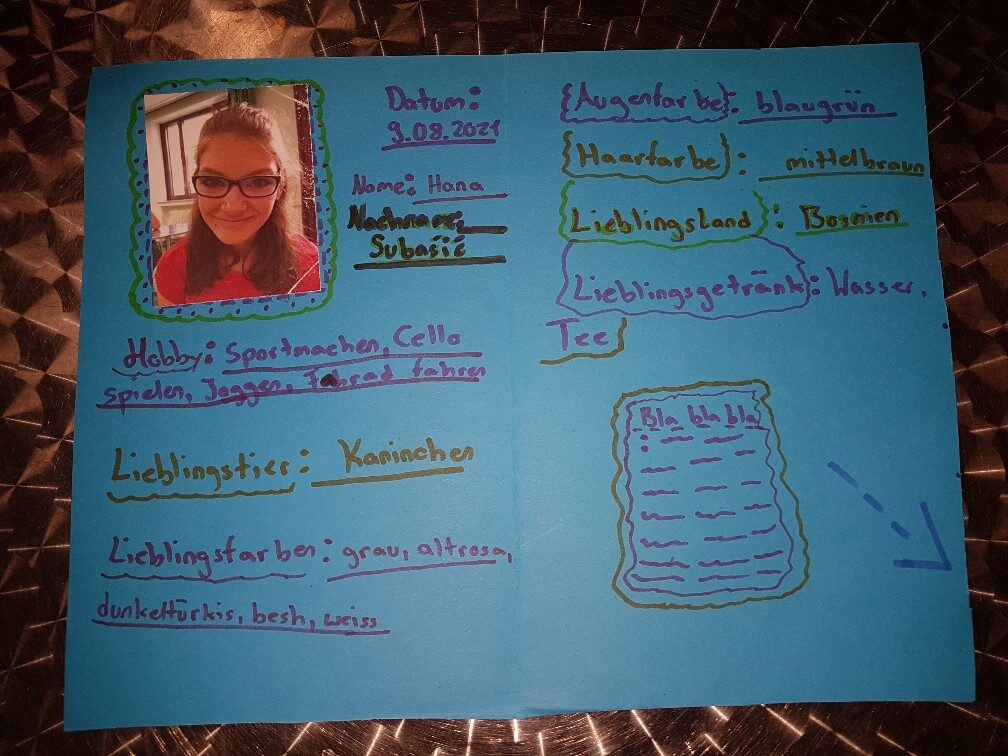 Datum:
9.08.2021
Name: Hana
Nachname:
Subašić
Hobby: Sportmachen, Cello
spielen, Joggen, Fahrad fahren
Lieblingstier: Kaninchen
Lieblingsfarben: grau, altrosa,
dunkeltürkis, besh, weiss
{Augenfarbe}: blaugrün
{Haarfarbe}: mittelbraun
Lieblingsland}: Bosnien
Lieblingsgetränk}: Wasser,
Tee
Bla bla bla